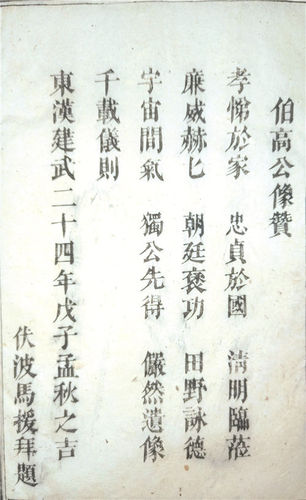 伯高公像贊
孝悌於家 忠貞於國 清明臨蒞
廉威赫匕 朝廷褒功 田野詠德
宇宙間氣 獨公先得 儼然遺像
千載儀則
東漢建武二十四年戊子孟秋之吉
伏波馬援拜題